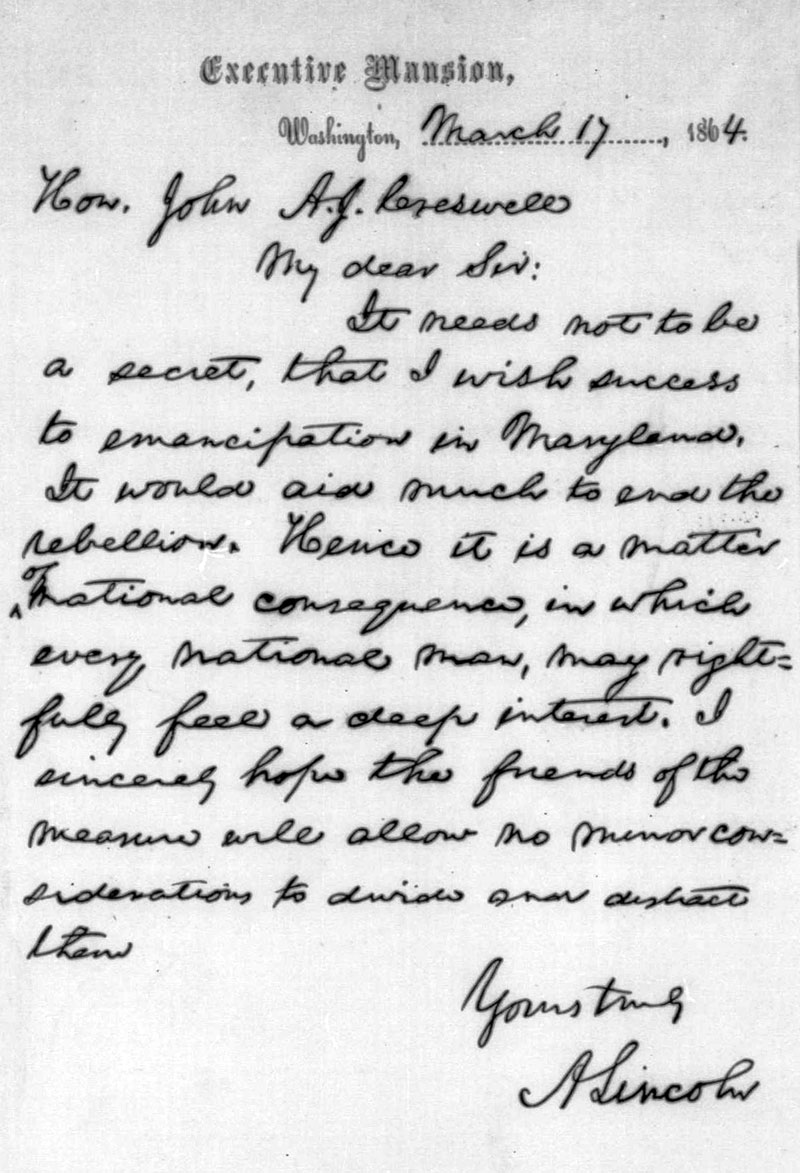 Executive Mansion,
Washington, March 17, 1864.
Hon. John A. J. Creswell
My dear Sir:
It needs not to be
a secret, that I wish success
to emancipation in Maryland.
It would aid much to end the
rebellion. Hence it is a matter
of national consequence, in which
every national man, may right=
fully feel a deep interest. I
sincerely hope the friends of the
measure will allow no minor con=
siderations to divide and distract
them
Yours truly
A Lincoln